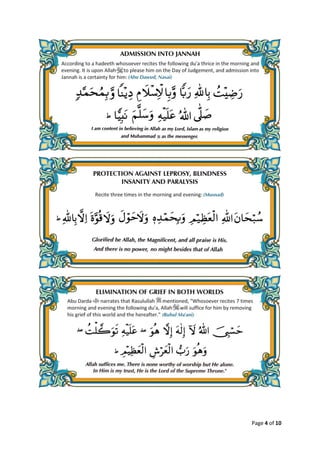 ADMISSION INTO JANNAH
According to a hadeeth whosoever recites the following du'a thrice in the morning and
evening. It is upon Allah ﷻ to please him on the Day of Judgement, and admission into
Jannah is a certainty for him: (Abu Dawud, Nasai)
رَضِيْتُ بِاللّٰهِ رَبًّا وَّبِالْاِسْلَامِ دِيْنًا وَّبِمُحَمَّدٍ
صَلَّى اللّٰهُ عَلَيْهِ وَسَلَّمَ نَبِيًّا ط
I am content in believing in Allah as my Lord, Islam as my religion
and Muhammad ﷺ as the messenger.
PROTECTION AGAINST LEPROSY, BLINDNESS
INSANITY AND PARALYSIS
Recite three times in the morning and evening: (Musnad)
سُبْحَانَ اللّٰهِ الْعَظِيْمِ وَبِحَمْدِهٖ وَلَاحَوْلَ وَلَاقُوَّةَ اِلَّا بِاللّٰهِ ط
Glorified be Allah, the Magnificent, and all praise is His,
And there is no power, no might besides that of Allah
ELIMINATION OF GRIEF IN BOTH WORLDS
Abu Darda narrates that Rasulullah ﷺ mentioned, "Whosoever recites 7 times
morning and evening the following du'a, Allah ﷻ will suffice for him by removing
his grief of this world and the hereafter." (Ruhul Ma'ani)
حَسْبِيَ اللّٰهُ لَآ اِلٰهَ اِلَّا هُوَ عَلَيْهِ تَوَكَّلْتُ
وَهُوَ رَبُّ الْعَرْشِ الْعَظِيْمِ ط
Allah suffices me. There is none worthy of worship but He alone.
In Him is my trust, He is the Lord of the Supreme Throne."
Page 4 of 10